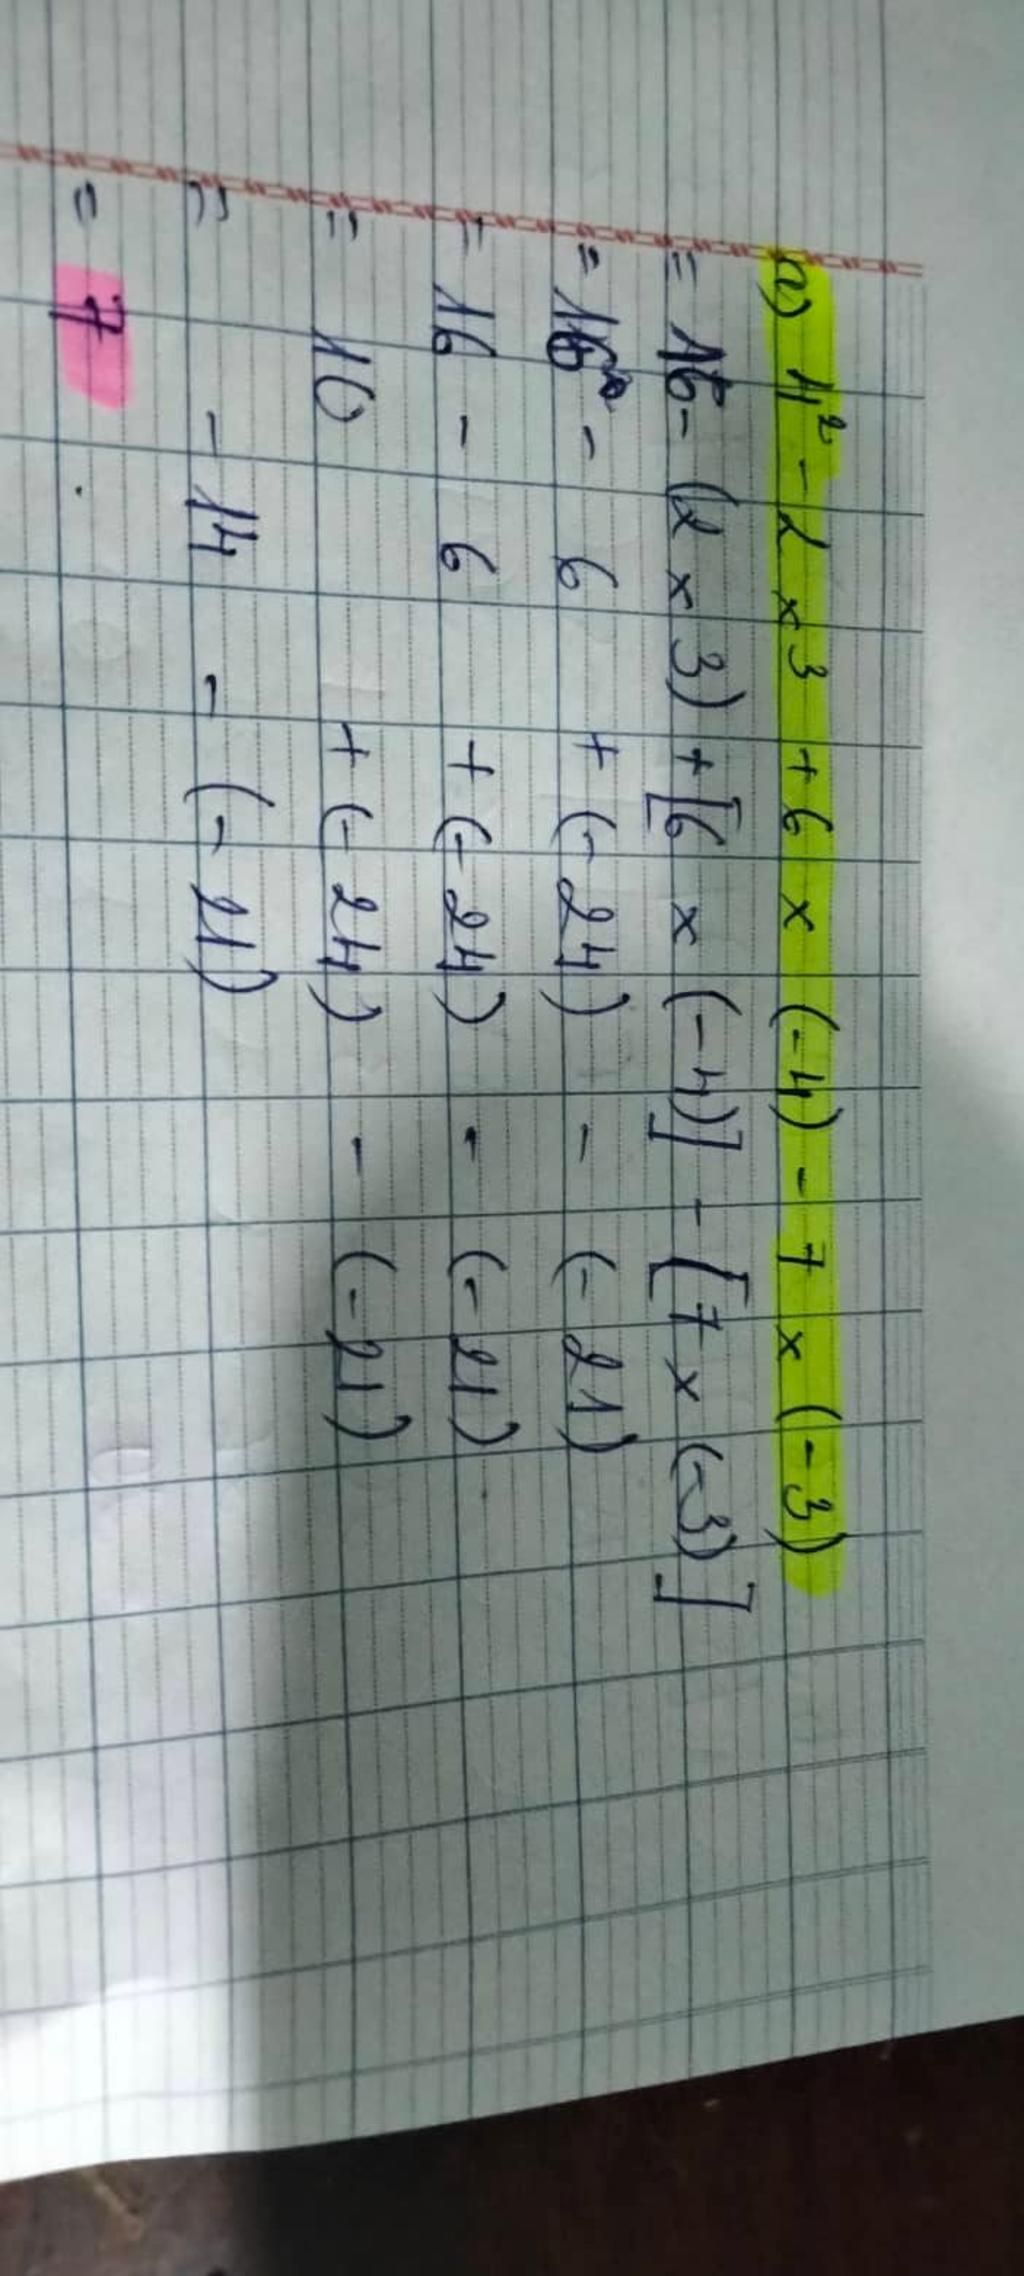 a) 4² - 2 x 3 + 6 x (-4) - 7 x (-3)
= 16 - (2 x 3) + [6 x (-4)] - [7 x (-3)]
= 16 - 6 + (-24) - (-21)
= 16 - 6 + (-24) - (-21)
= 10 + (-24) - (-21)
= -14 - (-21)
= 7